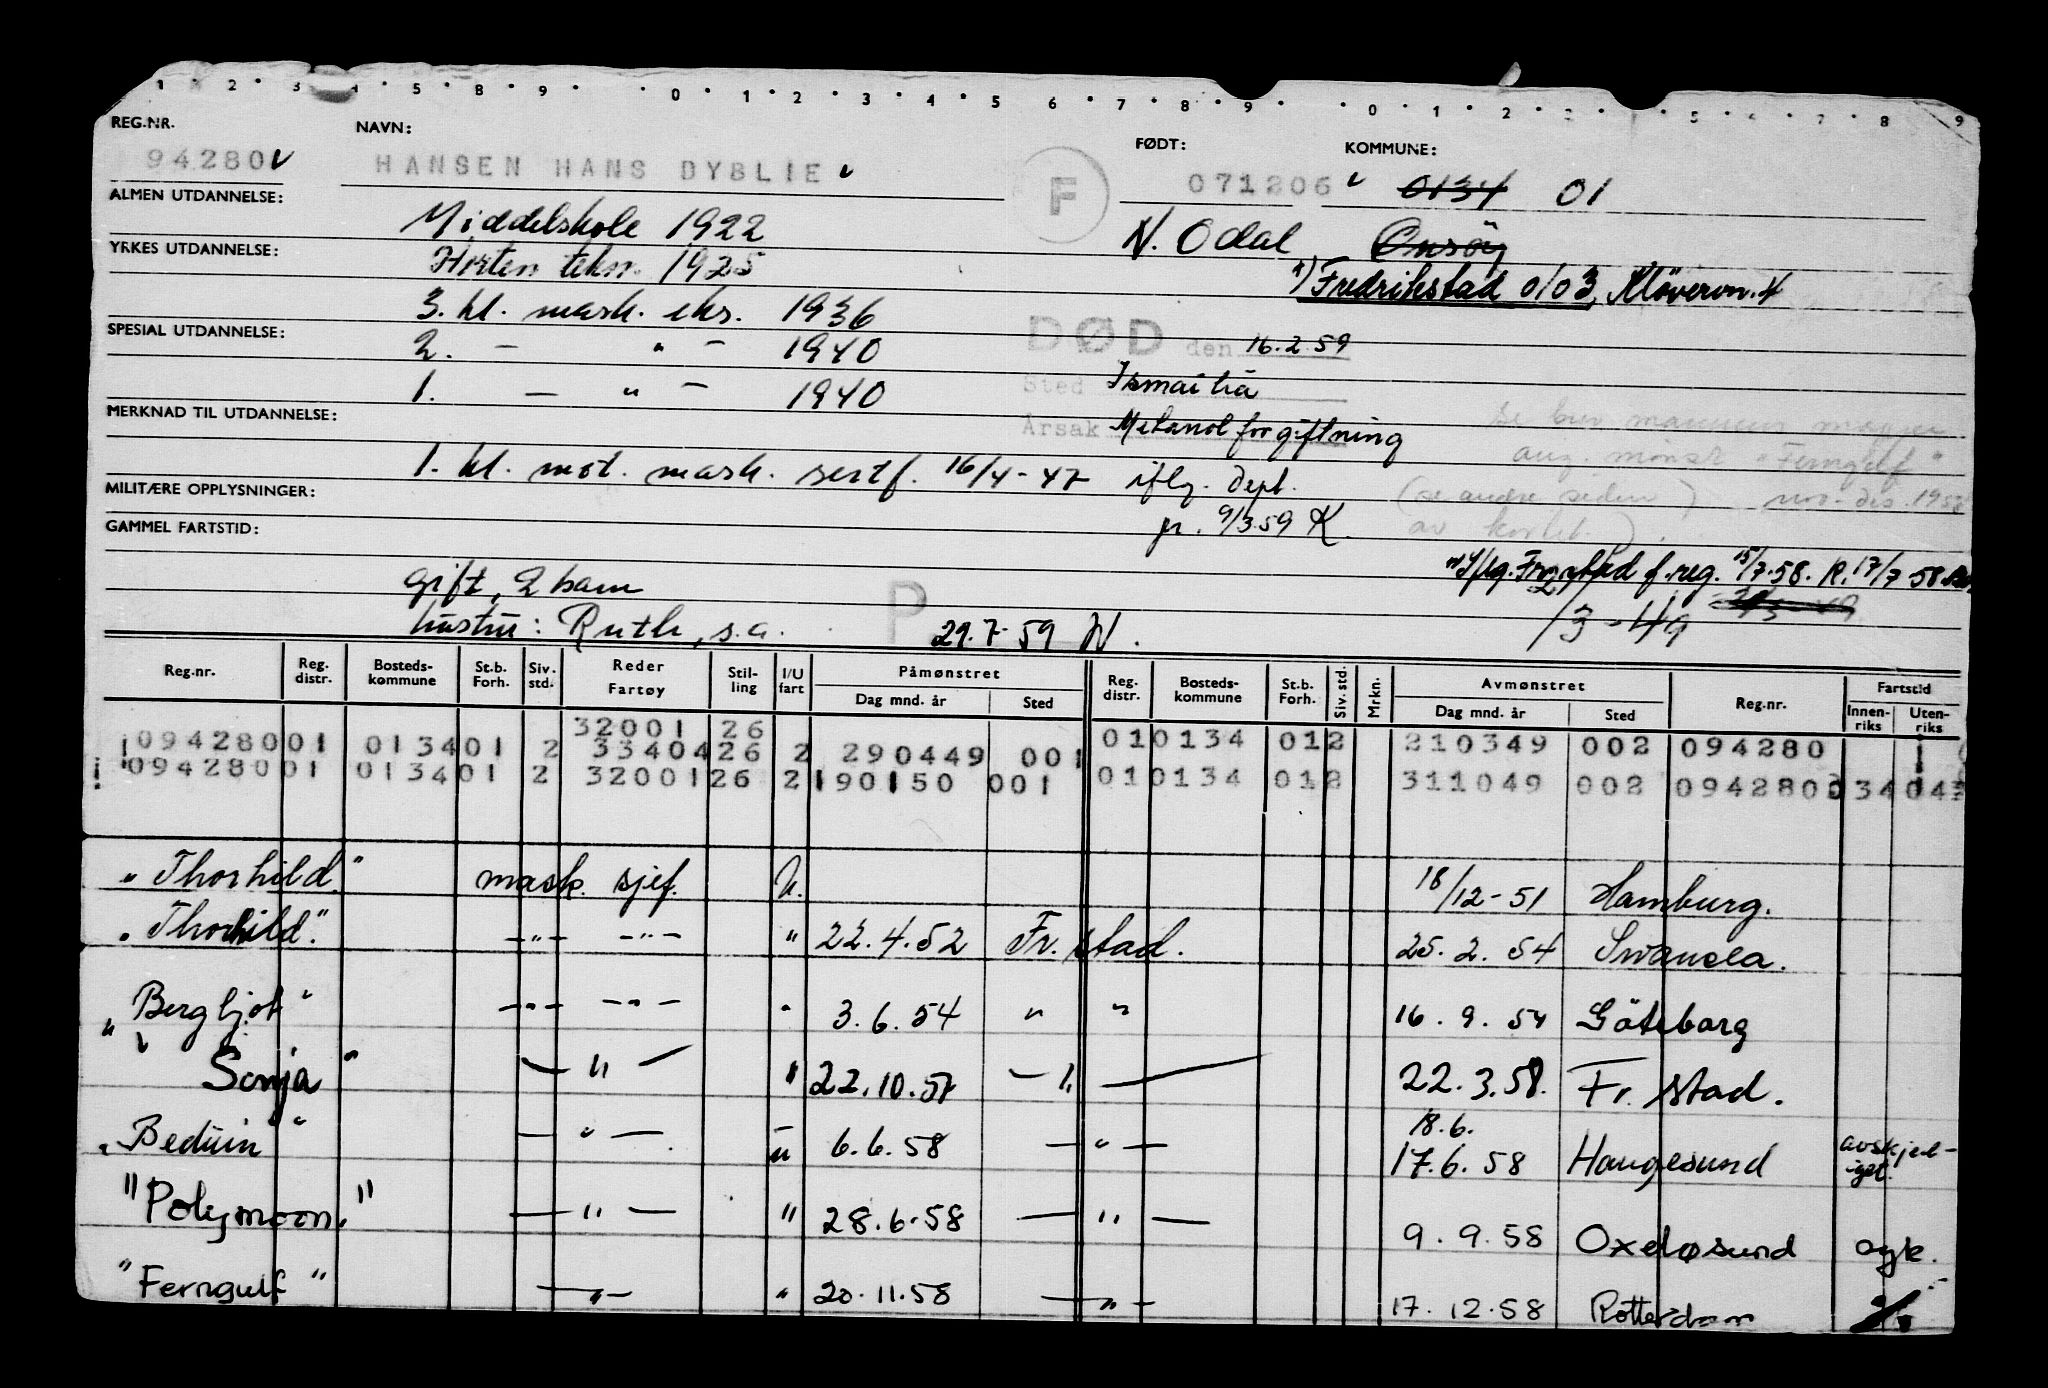 1 2 3 4 5 8 9 0 1 2 3 4 5 6 7 8 9 0 1 2 3 5 7 8 9
REG.NR. NAVN: FØDT: KOMMUNE:
94280 HANSEN HANS DYBLIE F 071206 0134 01
ALMEN UTDANNELSE: Middelskole 1922 N. Odal Onsöy
YRKES UTDANNELSE: Horten tekn. 1925 1) Fredrikstad 0103, Klöverv. 4
3. kl. mask. eks. 1936
SPESIAL UTDANNELSE: 2. — " — 1940 DØD den 16.2.59
1. — " — 1940 Sted Ismailia
MERKNAD TIL UTDANNELSE: Årsak Metanolforgiftning
Se brev
1. kl. mot. mask. sertf. 16/4-47 iflg. Dept. ang. mönstr "Ferngulf"
MILITÆRE OPPLYSNINGER: pr. 9/3.59 K. (se andre siden) nov-des. 1958
GAMMEL FARTSTID: av kortet.
Iflg. Fr.stad f.reg. 15/7.58. R. 17/7 58
gift, 2 barn
hustru: Ruth, s.a. P 29.7.59 W. 13-49
Reg.nr. Reg. distr. Bosteds-kommune St.b. Forh. Siv. std. Reder Fartøy Stil-ling I/U fart Påmønstret Reg. distr. Bosteds-kommune St.b. Forh. Siv. std. Mrkn. Avmønstret Reg.nr. Fartstid
Dag mnd. år Sted Dag mnd. år Sted Innen-riks Uten-riks
32001 26
094280 01 0134 01 2 33404 26 2 290449 001 01 0134 01 2 210349 002 094280
094280 01 0134 01 2 32001 26 2 190150 001 01 0134 01 2 311049 002 094280 0 34 04
"Thorhild." mask. sjef. u. 18/12-51 Hamburg.
"Thorhild". —"— —"— " 22.4.52 Fr.stad. 25.2.54 Swansea.
"Bergljot" —"— —"— " 3.6.54 " " 16.9.54 Göteborg
" Sonja " — " — " 22.10.57 — " — 22.3.58. Fr.stad.
"Beduin" — " — u 6.6.58 — " — 18.6. 17.6.58 Haugesund avskjed-iget.
"Polymoon." — " — " 28.6.58 — " — 9.9.58 Oxeløsund syk.
"Ferngulf" — " — " 20.11.58 — " — 17.12.58 Rotterdam